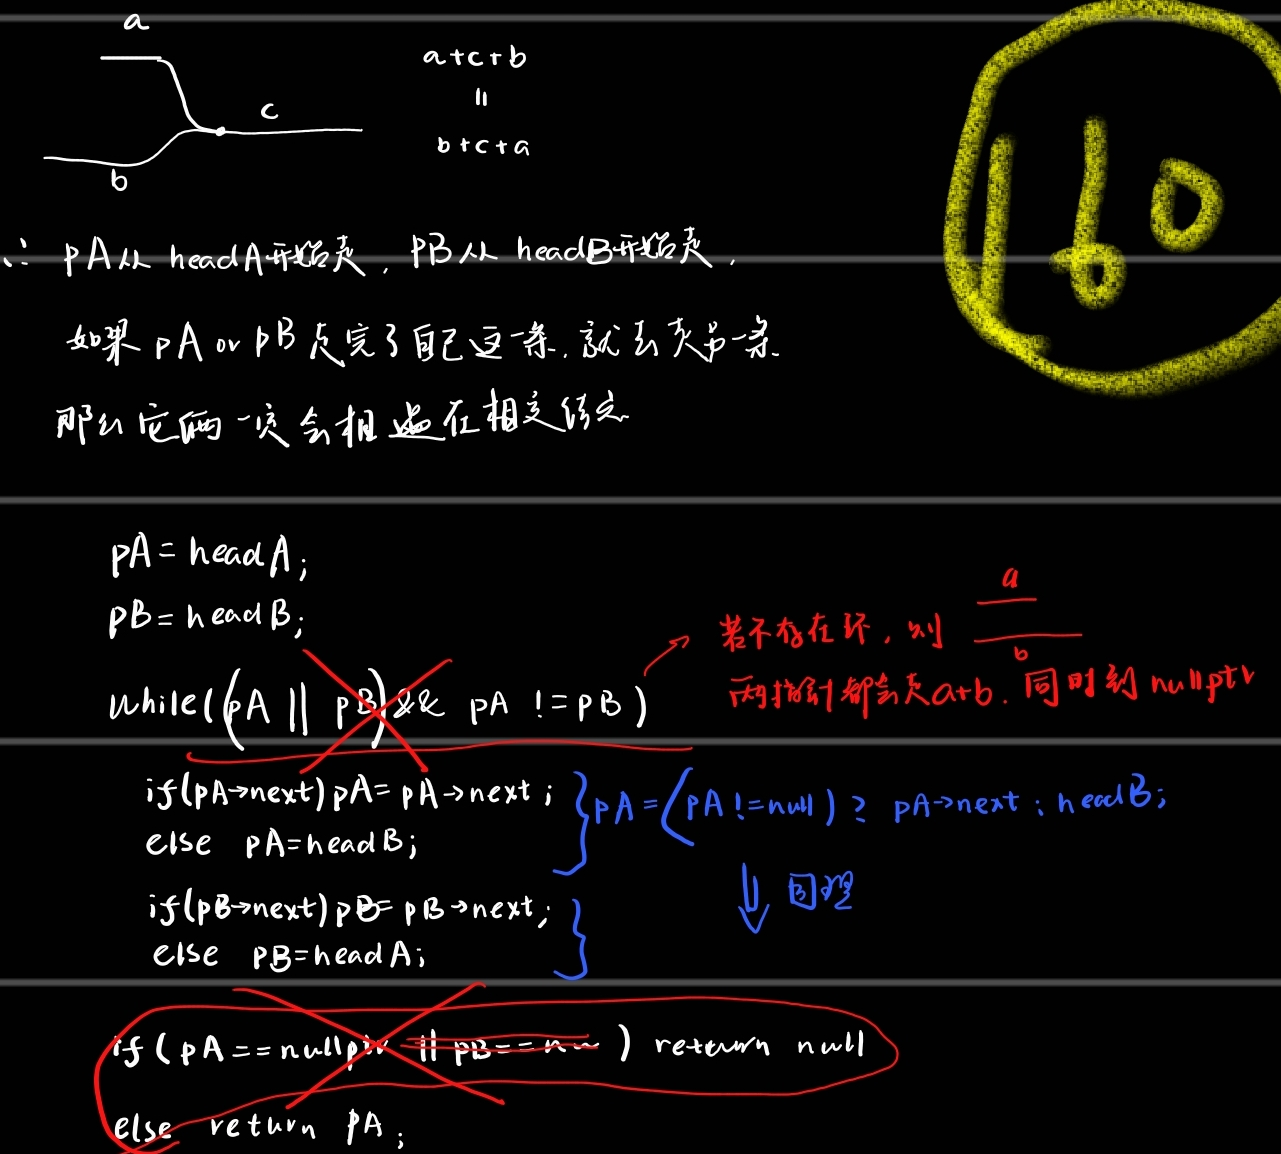 a
a+c+b
c
=
b+c+a
b
160
∴ pA从 headA开始走, pB从 headB开始走,
如果 pA or pB 走完了自己这一条, 就去走另一条.
那么它俩一定会相遇在相交结点
pA = headA;
pB = headB;
a
若不存在环, 则
b
while((pA || pB) && pA != pB)
两指针都会走a+b. 同时到 nullptr
if(pA->next) pA = pA->next;
else pA=headB;
pA = (pA != null) ? pA->next : headB;
同理
if(pB->next) pB = pB->next;
else pB=headA;
if (pA == nullptr || pB == nu) return null
else return pA;